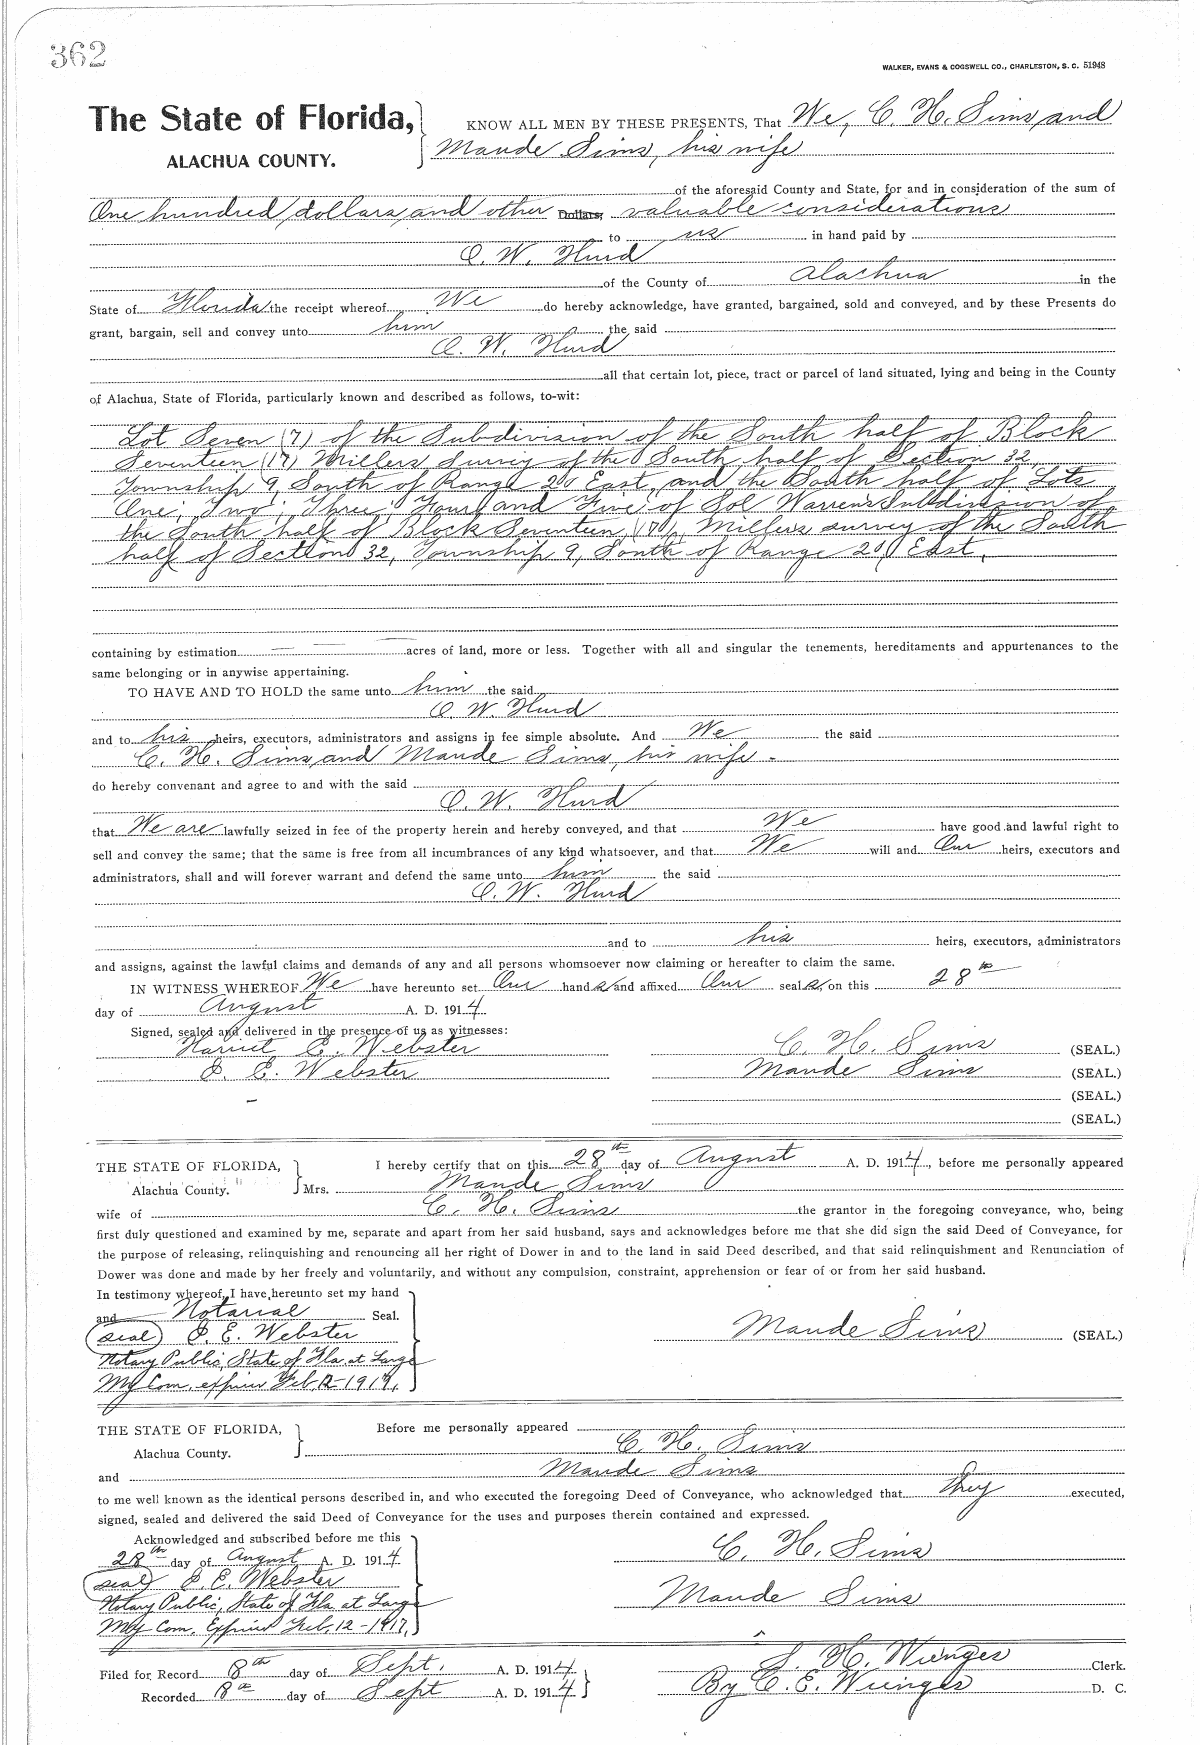 362
WALKER, EVANS & COGSWELL CO., CHARLESTON, S. C. 51948
The State of Florida,
ALACHUA COUNTY.
KNOW ALL MEN BY THESE PRESENTS, That We, C. H. Sims, and
Maude Sims, his wife
of the aforesaid County and State, for and in consideration of the sum of
One hundred dollars, and other Dollars, valuable considerations
to us in hand paid by
O. W. Hurd
of the County of Alachua in the
State of Florida the receipt whereof We do hereby acknowledge, have granted, bargained, sold and conveyed, and by these Presents do
grant, bargain, sell and convey unto him the said
O. W. Hurd
all that certain lot, piece, tract or parcel of land situated, lying and being in the County
of Alachua, State of Florida, particularly known and described as follows, to-wit:
Lot Seven (7) of the Subdivision of the South half of Block
Seventeen (17) Millers survey of the South half of Section 32,
Township 9, South of Range 20 East, and the South half of Lots
One, Two, Three, Four, and Five of Sol Warren's Subdivision of
the South half of Block Seventeen, (17), Millers survey of the South
half of Section 32, Township 9, South of Range 20, East,
containing by estimation acres of land, more or less. Together with all and singular the tenements, hereditaments and appurtenances to the
same belonging or in anywise appertaining.
TO HAVE AND TO HOLD the same unto him the said
O. W. Hurd
and to his heirs, executors, administrators and assigns in fee simple absolute. And We the said
C. H. Sims, and Maude Sims, his wife -
do hereby convenant and agree to and with the said
O. W. Hurd
that We are lawfully seized in fee of the property herein and hereby conveyed, and that We have good and lawful right to
sell and convey the same; that the same is free from all incumbrances of any kind whatsoever, and that We will and Our heirs, executors and
administrators, shall and will forever warrant and defend the same unto him the said
O. W. Hurd
and to his heirs, executors, administrators
and assigns, against the lawful claims and demands of any and all persons whomsoever now claiming or hereafter to claim the same.
IN WITNESS WHEREOF We have hereunto set Our hands and affixed Our seals, on this 28th
day of August A. D. 1914
Signed, sealed and delivered in the presence of us as witnesses:
Harriet E. Webster C. H. Sims (SEAL.)
J. E. Webster Maude Sims (SEAL.)
(SEAL.)
(SEAL.)
THE STATE OF FLORIDA,
Alachua County.
I hereby certify that on this 28th day of August A. D. 1914, before me personally appeared
Mrs. Maude Sims
wife of C. H. Sims the grantor in the foregoing conveyance, who, being
first duly questioned and examined by me, separate and apart from her said husband, says and acknowledges before me that she did sign the said Deed of Conveyance, for
the purpose of releasing, relinquishing and renouncing all her right of Dower in and to the land in said Deed described, and that said relinquishment and Renunciation of
Dower was done and made by her freely and voluntarily, and without any compulsion, constraint, apprehension or fear of or from her said husband.
In testimony whereof, I have hereunto set my hand
and Notarial Seal.
(seal) J. E. Webster Maude Sims (SEAL.)
Notary Public, State of Fla. at Large
My Com. expires Feb. 12 - 1917,
THE STATE OF FLORIDA,
Alachua County.
Before me personally appeared
C. H. Sims
and Maude Sims
to me well known as the identical persons described in, and who executed the foregoing Deed of Conveyance, who acknowledged that they executed,
signed, sealed and delivered the said Deed of Conveyance for the uses and purposes therein contained and expressed.
Acknowledged and subscribed before me this
28th day of August A. D. 1914 C. H. Sims
(seal) J. E. Webster
Notary Public, State of Fla at Large Maude Sims
My Com. Expires Feb. 12 - 1917,
Filed for Record 8th day of Sept. A. D. 1914 S. H. Wienges Clerk.
Recorded 8th day of Sept A. D. 1914 By C. E. Wienges D. C.